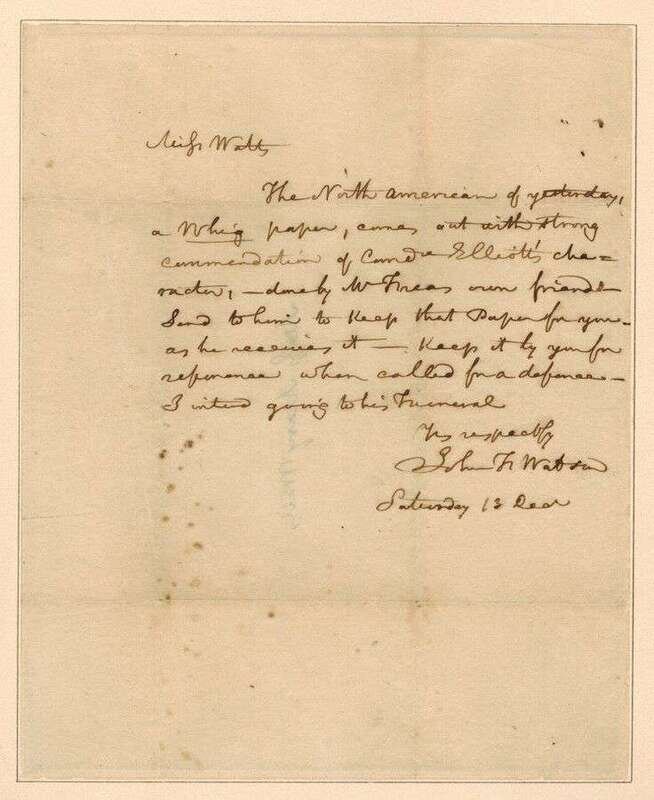 Miss Watts
The North American of yesterday,
a Whig paper, comes out with strong
commendation of Comde Elliott's cha=
racter, — done by Mr Freas own friend —
Send to him to keep that Paper for you —
as he receives it — Keep it by you for
reference when called for a defence —
I intend going to his Funeral
Yrs respectfy
John F Watson
Saturday 13 Decr